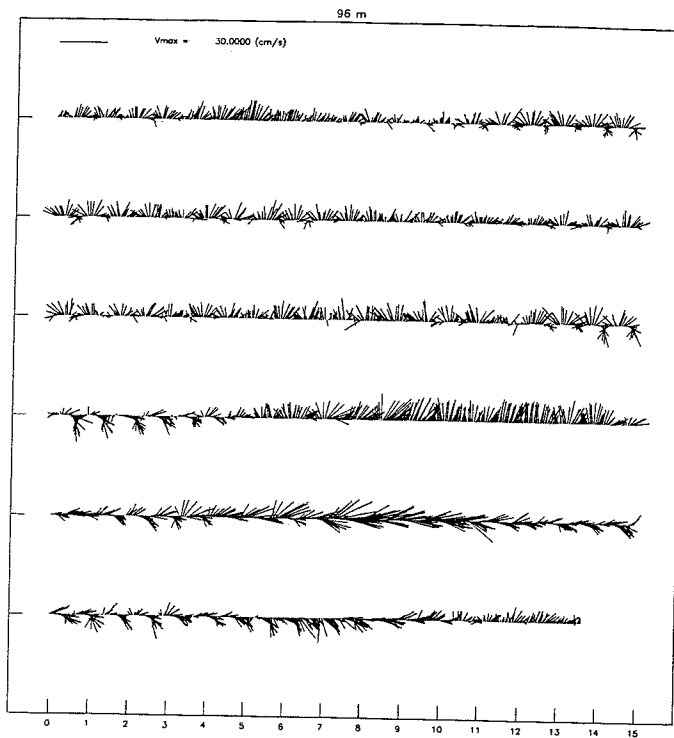 96 m
Vmax = 30.0000 (cm/s)
0 1 2 3 4 5 6 7 8 9 10 11 12 13 14 15